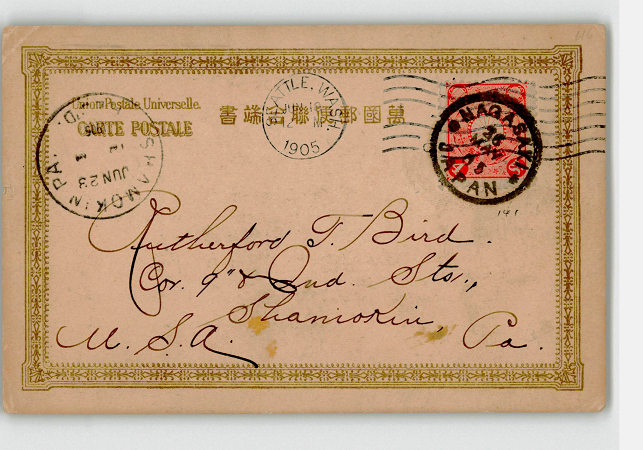 Union Postale Universelle.
CARTE POSTALE
書端聯便郵國萬
SEATTLE, WASH.
1905
NAGASAKI
JAPAN
SHAMOKIN PA.
JUN 23
Rutherford T. Bird.
Cor. 9" & 2nd. Sts.,
Shamokin,
U. S. A. Pa.
141